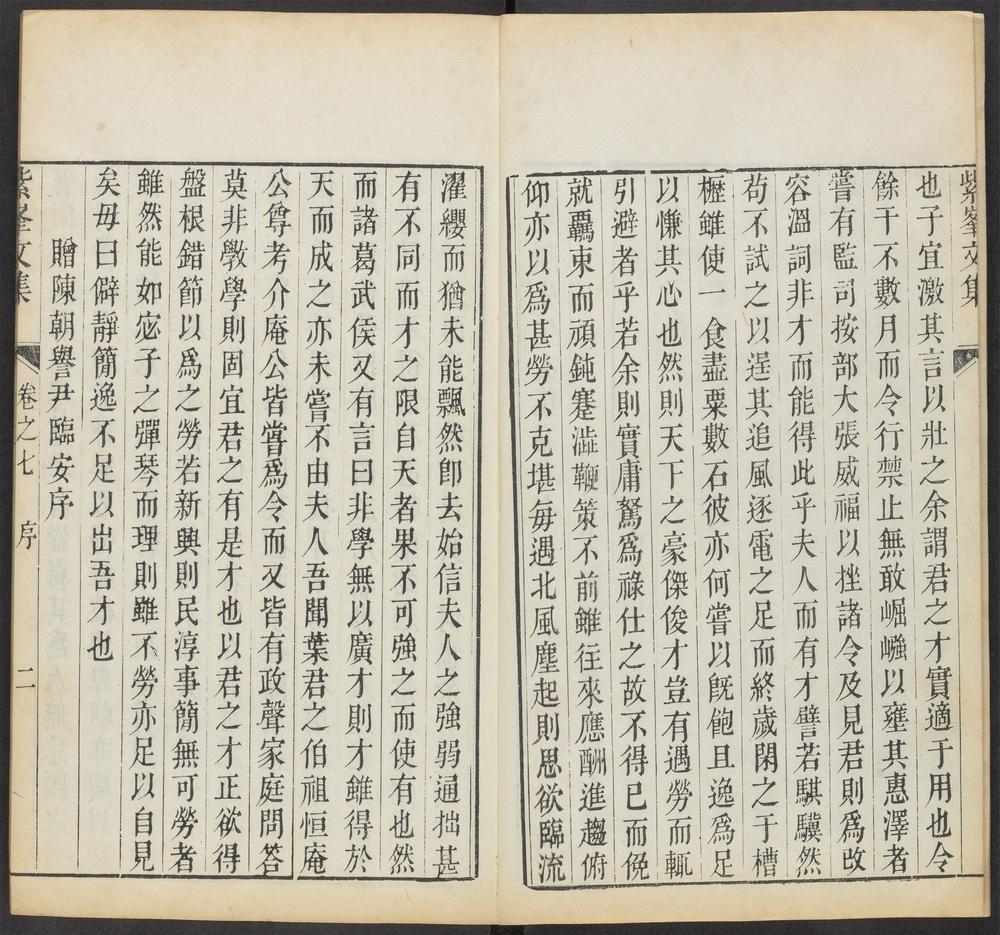 紫峯文集
也子宜激其言以壯之余謂君之才實適于用也令
餘干不數月而令行禁止無敢崛巇以壅其惠澤者
嘗有監司按部大張威福以挫諸令及見君則爲改
容溫詞非才而能得此乎夫人而有才譬若騏驥然
苟不試之以逞其追風逐電之足而終歲閑之于槽
櫪雖使一食盡粟數石彼亦何嘗以旣飽且逸爲足
以慊其心也然則天下之豪傑俊才豈有遇勞而輒
引避者乎若余則實庸駑爲祿仕之故不得已而俛
就羈束而頑鈍蹇澁鞭策不前雖往來應酬進趨俯
仰亦以爲甚勞不克堪每遇北風塵起則思欲臨流
濯纓而猶未能飄然卽去始信夫人之強弱通拙甚
有不同而才之限自天者果不可強之而使有也然
而諸葛武侯又有言曰非學無以廣才則才雖得於
天而成之亦未嘗不由夫人吾聞葉君之伯祖恒庵
公尊考介庵公皆嘗爲令而又皆有政聲家庭問答
莫非敎學則固宜君之有是才也以君之才正欲得
盤根錯節以爲之勞若新興則民淳事簡無可勞者
雖然能如宓子之彈琴而理則雖不勞亦足以自見
矣毋曰僻靜簡逸不足以出吾才也
贈陳朝譽尹臨安序
紫峯文集
卷之七
序
二